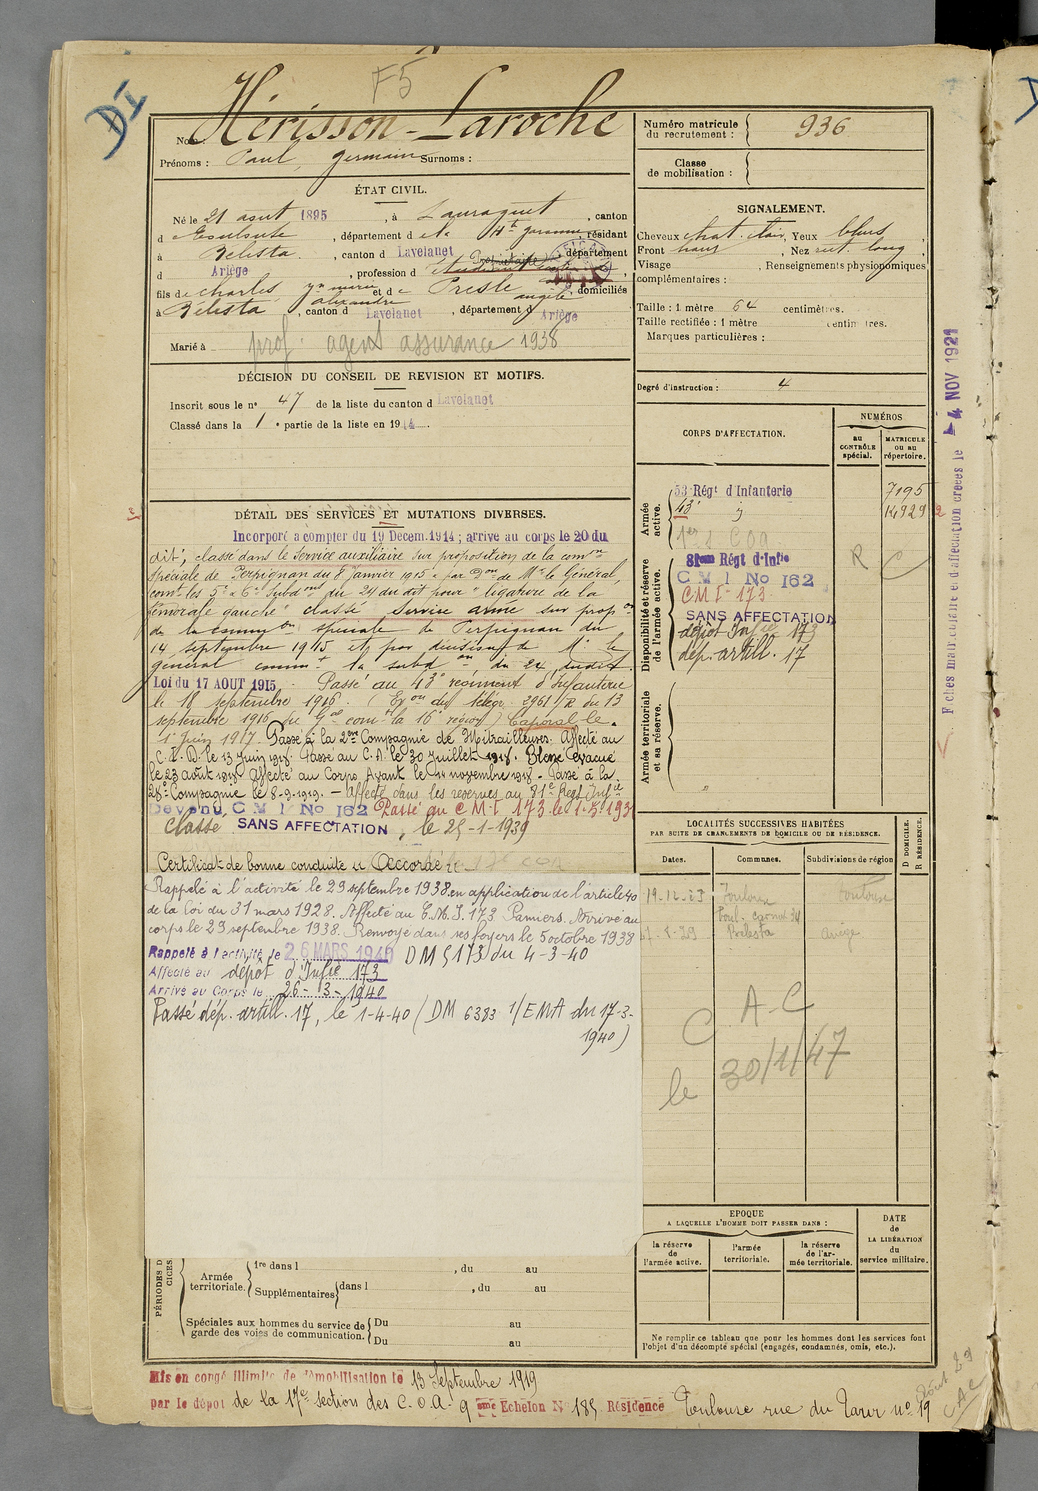 F5
DI
Nom : Hérisson-Laroche
Prénoms : Paul, germain Surnoms :
ÉTAT CIVIL.
Né le 21 août 1895, à Lauraguet, canton
d , département d la Hte garonne, résidant
à Bélesta, canton d Lavelanet département
d Ariège, profession d Etudiant Propriétaire
fils de Charles, et de Presle angèle domiciliés
alexandre
à Bélesta, canton d Lavelanet, département d Ariège
Marié à prof. agent assurance 1938
DÉCISION DU CONSEIL DE REVISION ET MOTIFS.
Inscrit sous le no 47 de la liste du canton d Lavelanet
Classé dans la 1 e partie de la liste en 1914.
DÉTAIL DES SERVICES ET MUTATIONS DIVERSES.
Incorporé à compter du 19 Decem. 1914 ; arrivé au corps le 20 du
dit, classé dans le Service auxiliaire sur proposition de la comon
Spéciale de Perpignan du 8 janvier 1915 par Don de Mr le Général,
comt les 5e & 6e Subdons du 24 du dit pour "ligature de la
fémorale gauche" classé service armé sur propon
de la common spéciale de Perpignan du
14 septembre 1915 et par décision de Mr le
général commt la subdon du 24 dudit.
Loi du 17 AOUT 1915. Passé au 43e régiment d'Infanterie
le 18 septembre 1916. (Exon du télégr 2961 /R du 13
septembre 1916 du Gal comt la 16e région) Caporal le
1er Juin 1917. Passé à la 2me Compagnie de Mitrailleuses. Affecté au
C.I.D. le 13 Juin 1918. Passé au C.A. le 30 Juillet 1918. Blessé évacué
le 23 août 1918 affecté au Corps Avant le 14 novembre 1918 - Passé à la
28e Compagnie le 8-9-1919. — Affecté dans les réserves au 81e Régt Infie
Devenu C M I No 162 Passé au C.M.I 173 le 1-5-193
classé SANS AFFECTATION, le 25-1-1939
Certificat de bonne conduite "Accordé"
Rappelé à l'activité le 29 septembre 1938 en application de l'article 40
de la loi du 31 mars 1928. Affecté au C.M.I. 173 Pamiers. Arrivé au
corps le 29 septembre 1938. Renvoyé dans ses foyers le 5 octobre 1938
Rappelé à l'activité le 26 MARS 1940 DM § 173 du 4-3-40
Affecté au dépôt d'Infie 173
Arrivé au Corps le 26-3-1940
Passé dép. artill. 17, le 1-4-40 (DM 6383 1/EMA du 17-3-
1940)
PÉRIODES D CICES
Armée territoriale.
1re dans l , du au
Supplémentaires dans l , du au
Spéciales aux hommes du service de garde des voies de communication.
Du au
Du au
Mis en congé illimité de démobilisation le 13 Septembre 1919
par le dépôt de la 17e section des C.O.A. 9 eme Echelon No 185 Résidence Toulouse rue du Taur no 19
Numéro matricule du recrutement : 936
Classe de mobilisation :
SIGNALEMENT.
Cheveux chat. clair, Yeux bleus
Front haut, Nez rect. long,
Visage , Renseignements physionomiques
complémentaires :
Taille : 1 mètre 64 centimètres.
Taille rectifiée : 1 mètre centimètres.
Marques particulières :
Degré d'instruction : 4
CORPS D'AFFECTATION.
NUMÉROS
au CONTRÔLE spécial.
MATRICULE ou au répertoire.
Armée active.
53 Régt d'Infanterie 7195
43e 14929
Disponibilité et réserve de l'armée active.
81eme Régt d'Infie
C M I No 162
C M I 173
SANS AFFECTATION
dépôt Infie 173
dép. artill. 17
R C
Armée territoriale et sa réserve.
LOCALITÉS SUCCESSIVES HABITÉES
PAR SUITE DE CHANGEMENTS DE DOMICILE OU DE RÉSIDENCE.
Dates. Communes. Subdivisions de région
D DOMICILE.
R RÉSIDENCE.
Toulouse Toulouse
Bélesta Ariège
C A-C
le 30/1/47
EPOQUE
A LAQUELLE L'HOMME DOIT PASSER DANS :
la réserve de l'armée active.
l'armée territoriale.
la réserve de l'armée territoriale.
DATE DE LA LIBÉRATION du service militaire.
Ne remplir ce tableau que pour les hommes dont les services font
l'objet d'un décompte spécial (engagés, condamnés, omis, etc.).
Fiches matriculaire et d'affectation créées le - 4 NOV 1921